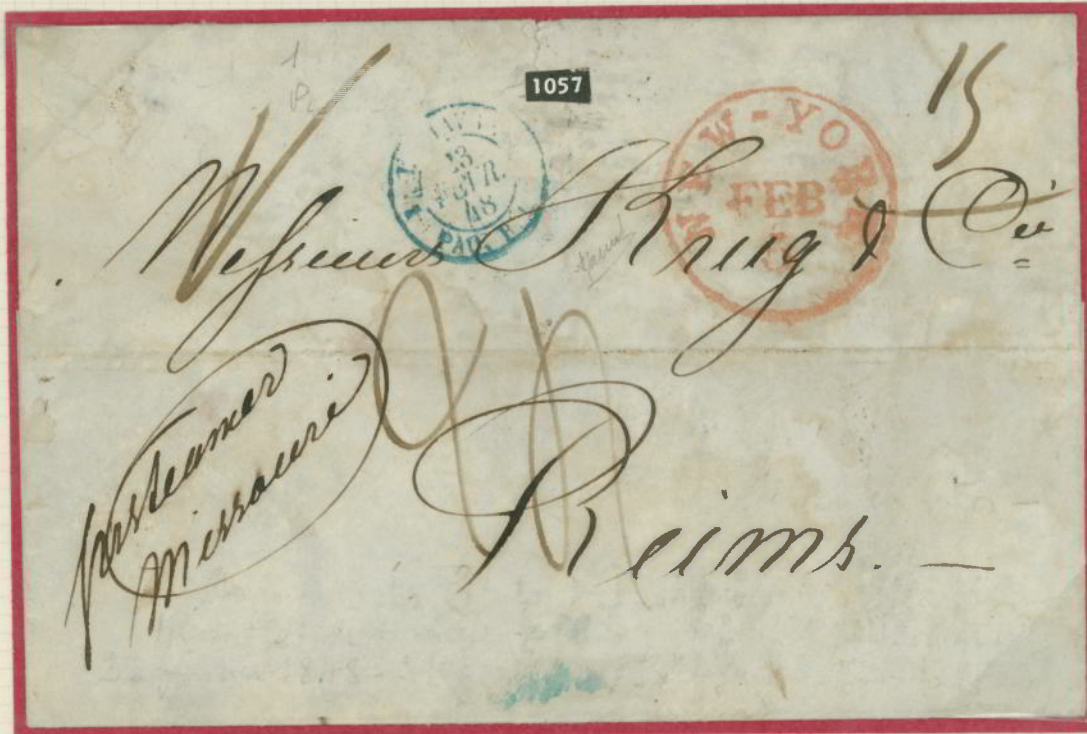 1057
15
NEW-YORK
FEB
13
FEVR.
48
PAQ.
Messieurs Krug & Cie
per steamer
Missouri
Reims. —